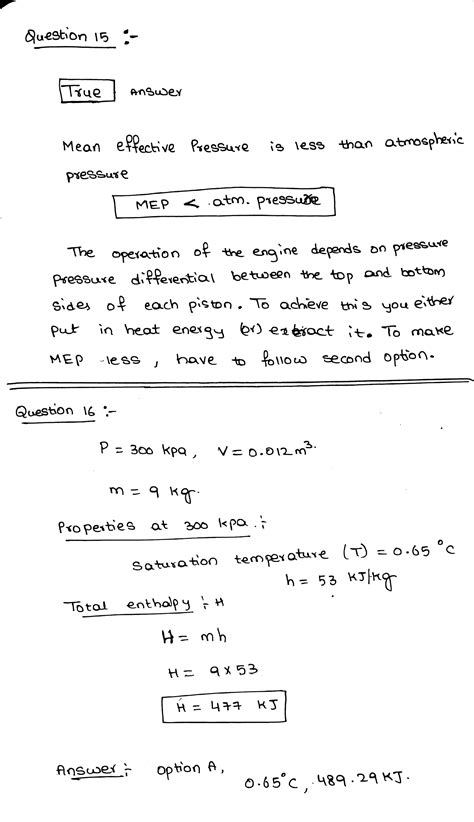 Question 15 :-
True Answer
Mean effective Pressure is less than atmospheric
pressure
MEP < atm. pressure
The operation of the engine depends on pressure
pressure differential between the top and bottom
sides of each piston. To achieve this you either
put in heat energy (or) extract it. To make
MEP less, have to follow second option.
Question 16 :-
P = 300 kpa, V = 0.012 m³.
m = 9 kg.
Properties at 300 kpa :-
Saturation temperature (T) = 0.65 °C
h = 53 KJ/kg
Total enthalpy :- H
H = mh
H = 9 x 53
H = 477 KJ
Answer :- option A,
0.65°C, 489.29 KJ.